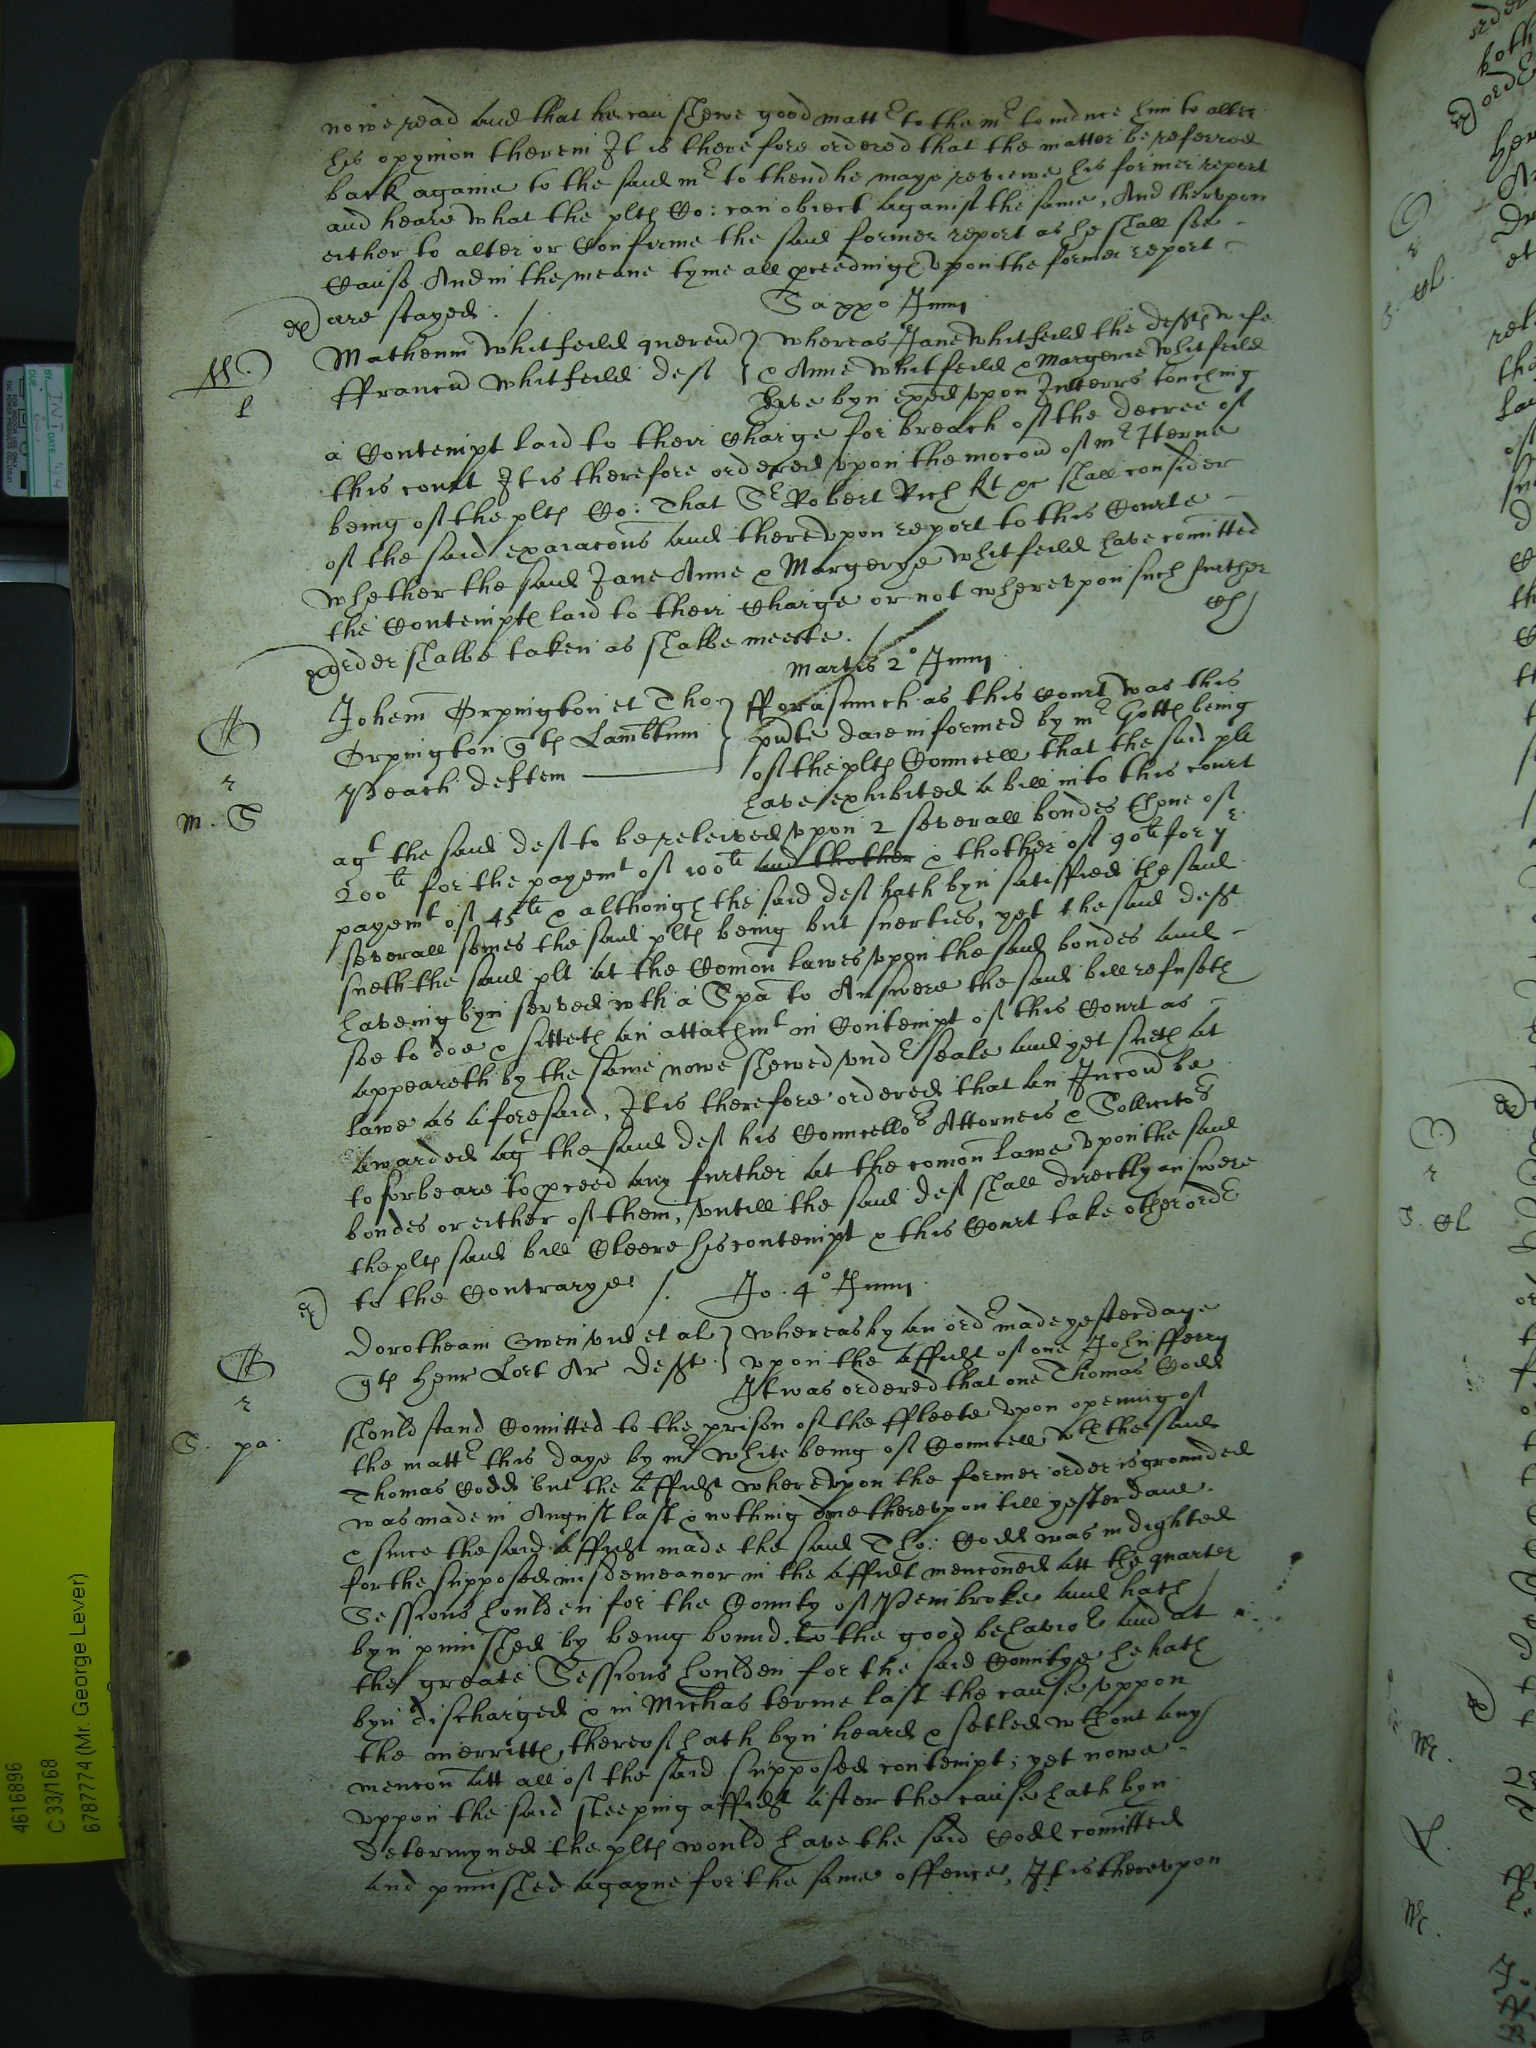 nowe read and that he can shewe good mattr to the mr to induce him to alter
his opynion therein It is therefore ordered that the matter be referred
back againe to the said mr to thend he maye reviewe his former report
and heare what the plts Co: can obiect against the same, And therevpon
either to alter or Confirme the said former report as he shall see
Cause And in the meane tyme all pceedings vpon the former report
ex) are stayed . /
Sabbo Junij
M
l
Matheum Whitfeild quereñ } whereas Jane Whitfeild the defts wife
ffranciu Whitfeild deft } & Anne Whitfeild & Margerie Whitfeild
have byn exed vpon Interrs touching
a Contempt laid to their Charge for breach of the decree of
this court It is therefore ordered vpon the mocon of mr Herne
being of the plts Co: That Sr Robert Rich kt &c shall consider
of the said exaiacons and therevpon report to this Courte
whether the said Jane Anne & Margerye Whitfeild have comitted
the Contempts laid to their Charge or not wherevpon such further
ex) order shalbe taken as shalbe meete . /
Martis 2° Junij
r
m. S
Johem Orpington et Tho } fforasmuch as this Court was this
Orpington qts Lambtum } pnte daie informed by mr Gotts being
Peach deftem } of the plts Councell that the said plt
have exhibited a bill into this court
agt the said deft to be releived vpon 2 severall bondes thone of
200li for the payemt of 100li and thother & thother of 90li for ye
payemt of 45li & although the said deft hath byn satisfied the said
severall somes the said plts being but suerties, yet the said deft
sueth the said plt at the Comon lawes vpon the said bondes and
haveing byn served wth a Spa to Answere the said bill refuseth
soe to doe & sitteth an attachmt in Contempt of this Court as
appeareth by the same nowe shewed vndr seale and yet sueth at
lawe as aforesaid, It is therefore ordered that an Iniuncon be
awarded agt the said deft his Councellors Attorneis & Sollicitors
to forbeare to pceed any further at the comon lawe vpon the said
bondes or either of them, vntill the said deft shall directly answere
the plts said bill Cleere his contempt & this Court take other ordr
ex) to the Contrarye / .
Jo. 4° Junij
r
S. pa.
Dorotheam Owen vid et al } whereas by an ordr made yesterdaye
qts Henr Lort Ar deft } vpon the affidt of one John fferry
It was ordered that one Thomas Codd
should stand Comitted to the prison of the ffleete vpon opening of
the mattr this daye by mr White being of Councell wth the said
Thomas Codd but the affidt wherevpon the former order is grounded
was made in August last & nothing done therevpon till yesterdaie
& since the said affidt made the said Tho: Codd was indighted
for the supposed misdemeanor in the affidt menconed att the quarter
Sessions houlden for the County of Pembroke and hath
byn punished by being bound to the good behavior and at
the greate Sessions houlden for the said Countye he hath
byn discharged & in Michas terme last the cause vppon
the merritts thereof hath byn heard & setled wthout any
mencon att all of the said supposed contempt; yet nowe
vppon the said sleeping affidt after the cause hath byn
determyned the plts would have the said Codd comitted
and punished agayne for the same offence, It is therevpon
4616896
C 33/168
6787774 (Mr. George Lever)